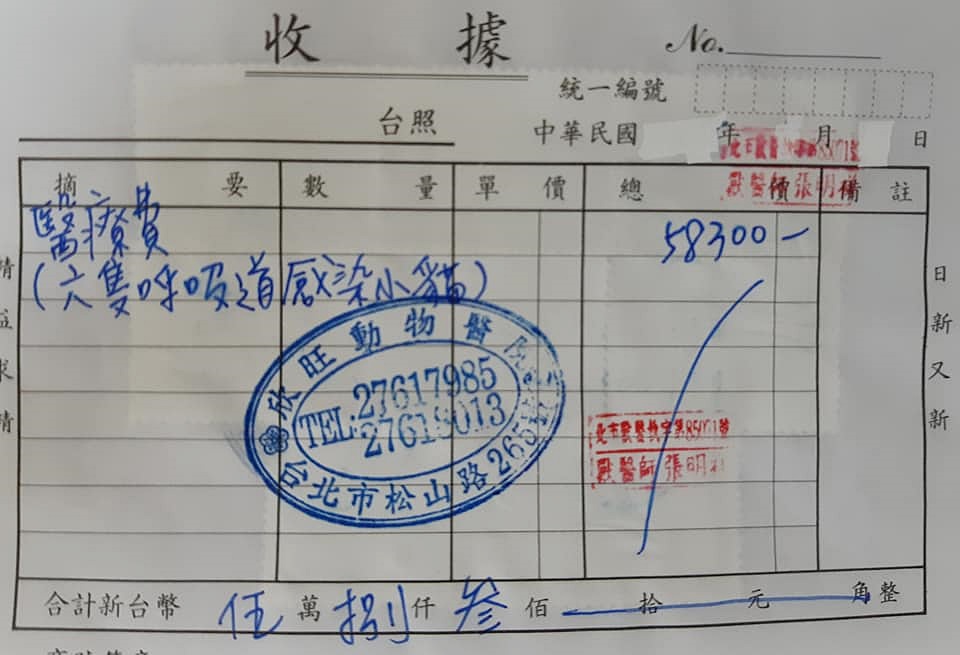 收據
No.
統一編號
台照
中華民國 年 月 日
北市獸醫
獸醫師張明
摘要 數量 單價 總價 備註
醫療費
58300-
(六隻呼吸道感染小貓)
欣旺動物醫院
TEL:27617985
台北市松山路265
獸醫師 張明
日新又新
合計新台幣 伍 萬 捌 仟 叁 佰 拾 元 角整